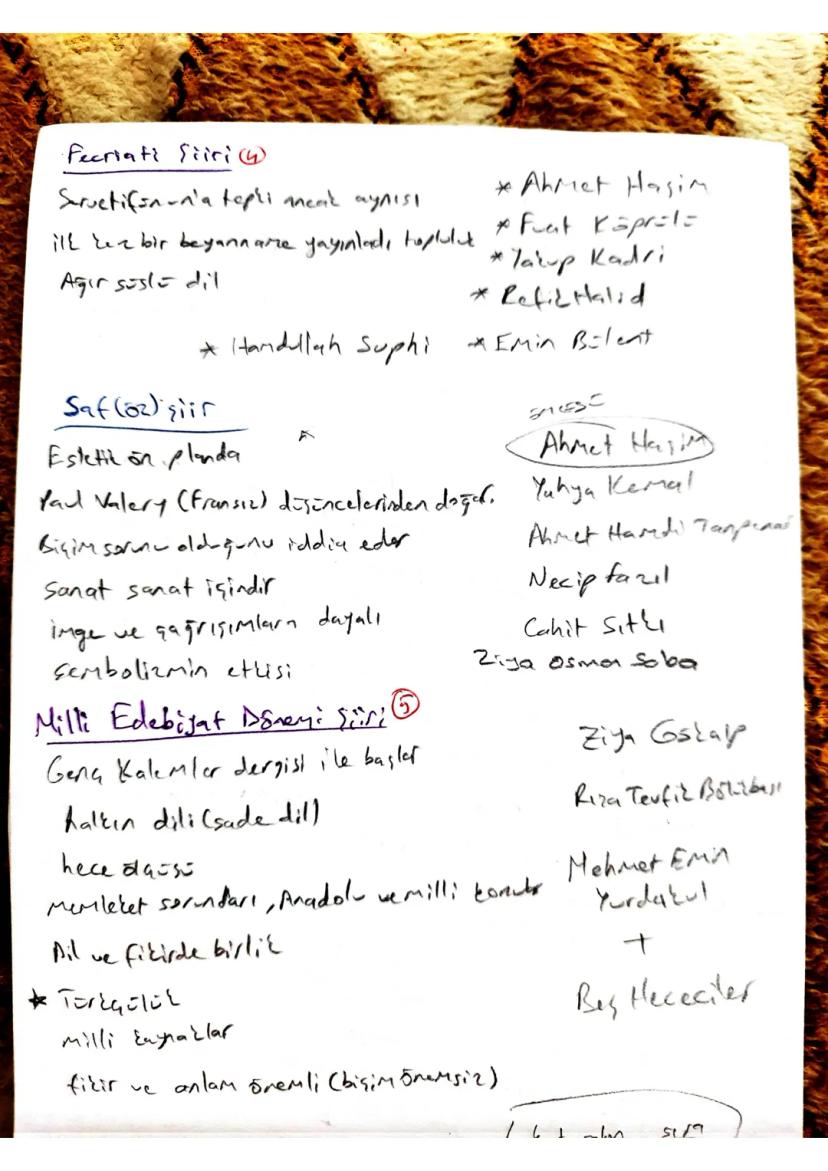 Fecriati Şiiri (4)
Servetifünun'a tepki ancak aynısı
ilk kez bir beyanname yayınladı topluluk
Ağır süslü dil
* Ahmet Haşim
* Fuat Köprülü
* Yakup Kadri
* Refik Halid
* Hamdullah Suphi * Emin Bülent
Saf (öz) şiir
Estetik ön planda
Paul Valery (Fransız) düşüncelerinden doğar.
Biçim sorunu olduğunu iddia eder
Sanat sanat içindir
imge ve çağrışımlara dayalı
sembolizmin etkisi
öncüsü
Ahmet Haşim
Yahya Kemal
Ahmet Hamdi Tanpınar
Necip fazıl
Cahit Sıtkı
Ziya Osman Saba
Milli Edebiyat Dönemi Şiiri (5)
Genç Kalemler dergisi ile başlar
halkın dili (sade dil)
hece ölçüsü
Memleket sorunları, Anadolu ve milli konular
Dil ve fikirde birlik
* Türkçülük
milli kaynaklar
fikir ve anlam önemli (biçim önemsiz)
Ziya Gökalp
Rıza Tevfik Bölükbaşı
Mehmet Emin
Yurdakul
+
Beş Hececiler